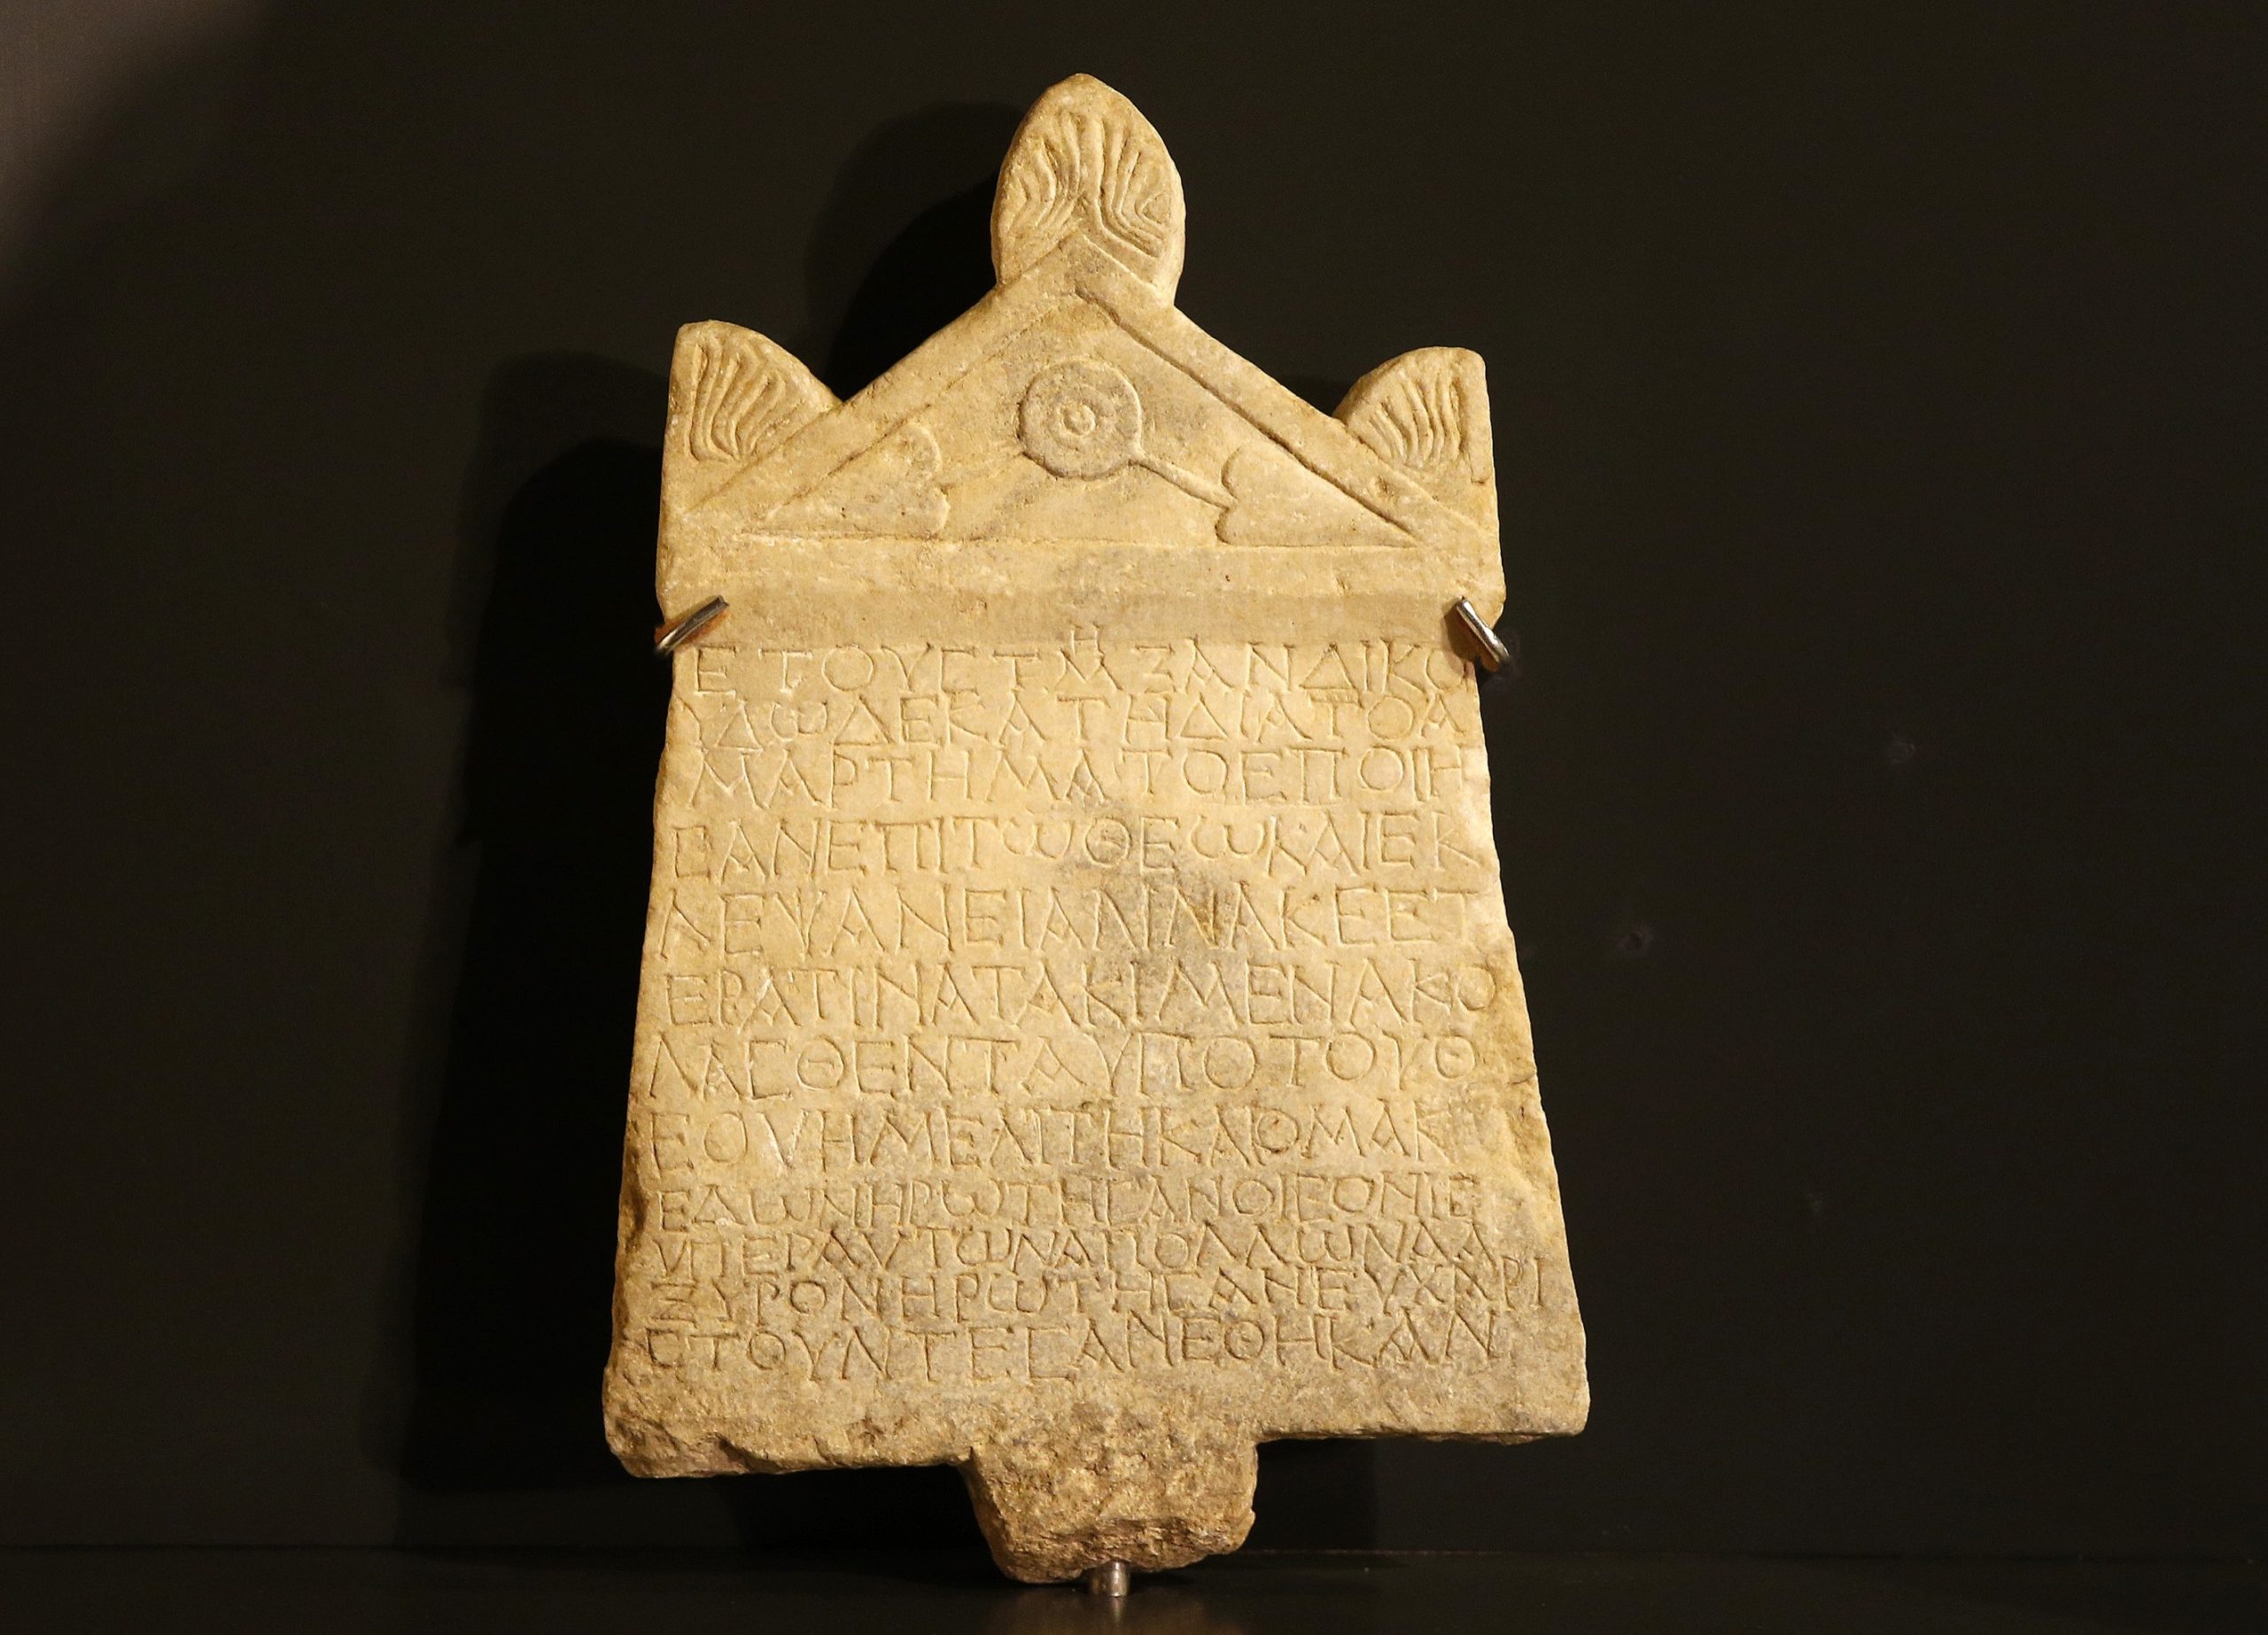 ΕΤΟΥΣΤΜΗΞΑΝΔΙΚΟ
ΥΔωΔΕΚΑΤΗΔΙΑΤΟΑ
ΜΑΡΤΗΜΑΤΟΕΠΟΙΗ
ϹΑΝΕΠΙΤωΘΕωΚΑΙΕΚ
ΛΕΨΑΝΕΙΑΝΙΝΑΚΕΕΤ
ΕΡΑΤΙΝΑΤΑΚΙΜΕΝΑΚΟ
ΛΑϹΘΕΝΤΑΥΠΟΤΟΥΘ
ΕΟΥΗΜΕΛΙΤΗΚΑΙΟΜΑΚ
ΕΔωΝΗΡωΤΗϹΑΝΟΙΓΟΝΙϹ
ΥΠΕΡΑΥΤωΝΑΠΟΛΛωΝΑΛΑ
ΞΥΡΟΝΗΡωΤΗϹΑΝΕΥΧΑΡΙ
ϹΤΟΥΝΤΕϹΑΝΕΘΗΚΑΝ